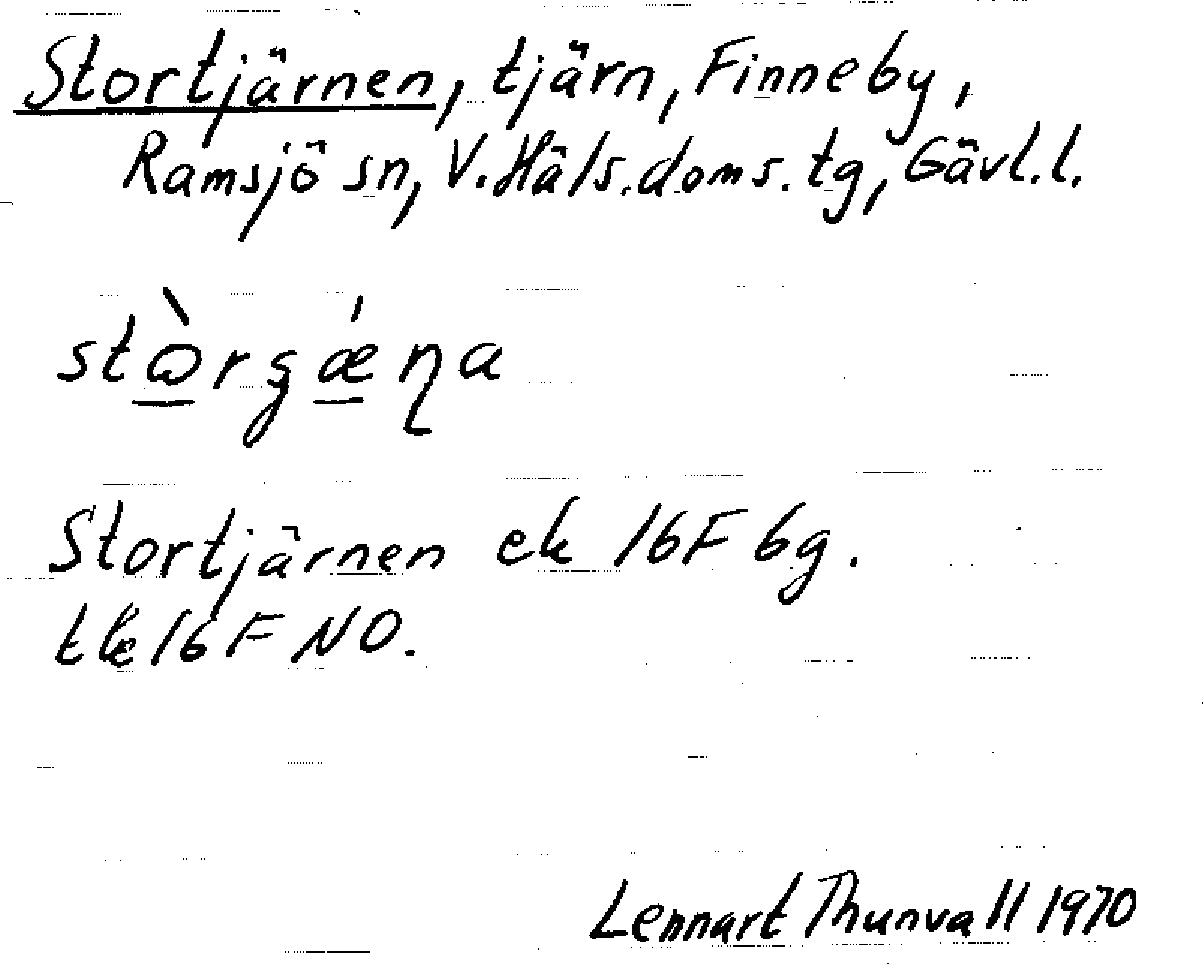 Stortjärnen, tjärn, Finneby,
Ramsjö sn, V. Häls. doms. tg, Gävl. l.
Stortjärnen ek 16F 6g.
tk 16F NO.
Lennart Thunvall 1970